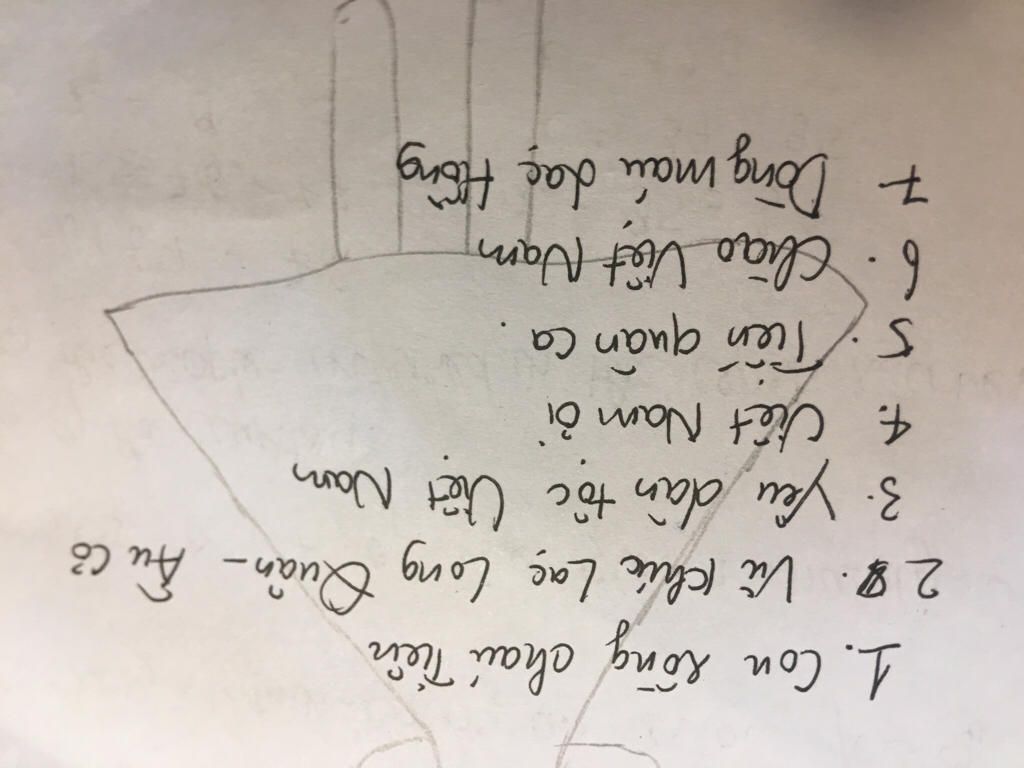 1. Con Rồng cháu Tiên
2. Vũ khúc Lạc Long Quân - Âu Cơ
3. Yêu dân tộc Việt Nam
4. Việt Nam ơi
5. Tiến quân ca.
6. Chào Việt Nam
7. Dòng máu Lạc Hồng